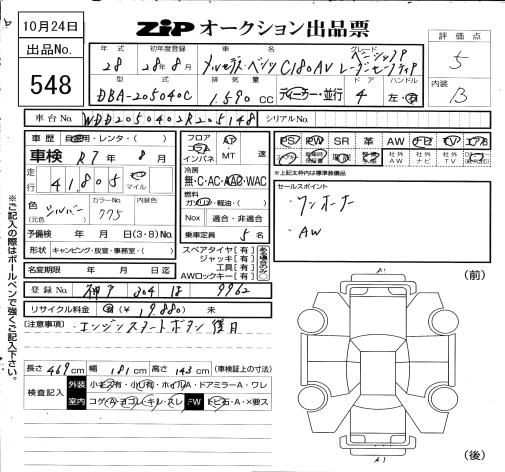 10月24日 ZIP オークション出品票
出品No. 548
評価点 5
内装 B
年式 初年度登録 車名 グレード
28 28年8月 メルセデス・ベンツ C180AV
型式 排気量 ドア ハンドル
DBA-205040C 1.590 cc ディーラー・並行 4 左・右
車台No. WDD2050402R205148 シリアルNo.
車歴 自家用・レンタ・( )
車検 R7年8月
走行 41,805 マイル
色 シルバー (元色) カラーNo. 775 内装色
予備検 年 月 日(3・8)No.
形状 キャンピング・放宣・事務室・( )
名変期限 年 月 日迄
フロア インパネ AT MT 速
冷房 無・C・AC・AAC・WAC
燃料 ガソリン・軽油・( )
Nox 適合・非適合
乗車定員 5名
スペアタイヤ[有]
ジャッキ[有]
工具[有]
AWロックキー[有]
PS PW SR 革 AW ナビ TV エアB
社外AW 社外ナビ 社外TV
*上記太枠内は標準装備品
セールスポイント
・ワンオーナー
・AW
登録No. 神戸 304 18 9962
リサイクル料金 有(¥19,880) 未
(注意事項) エンジンスタートボタン後日
長さ 469cm 幅 181cm 高さ 143cm (車検証上の寸法)
検査記入 外装 小キズ有・小凹有・ホイルA・ドアミラーA・ワレ
室内 コゲ・A・ヨゴレ・キレ・スレ FW トビ石・A・×要ス
※ご記入の際はボールペンで強くご記入下さい。
(前)
A1
A1
(後)